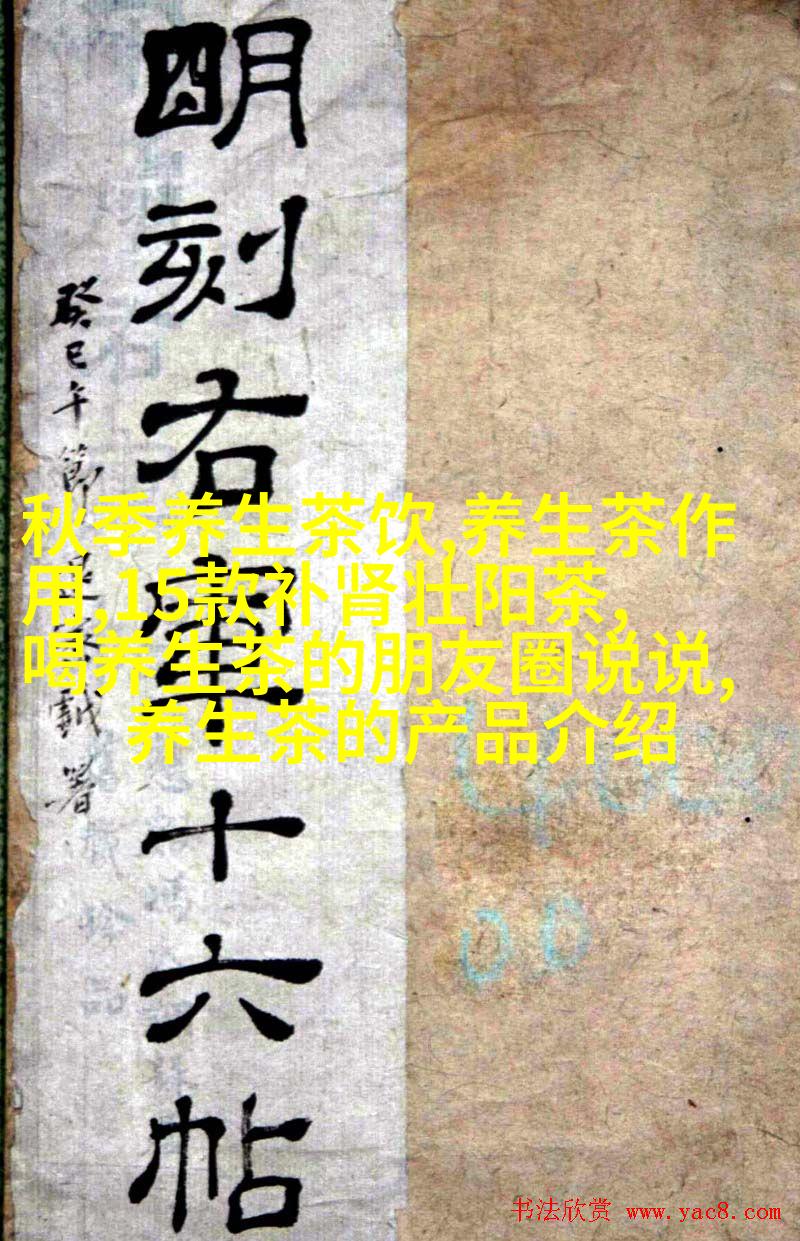 明刻右軍十六帖
癸巳午節
署
秋季养生茶饮,养生茶作
用,15款补肾壮阳茶,
喝养生茶的朋友圈说说,
养生茶的产品介绍
书法欣赏 www.yac8.com